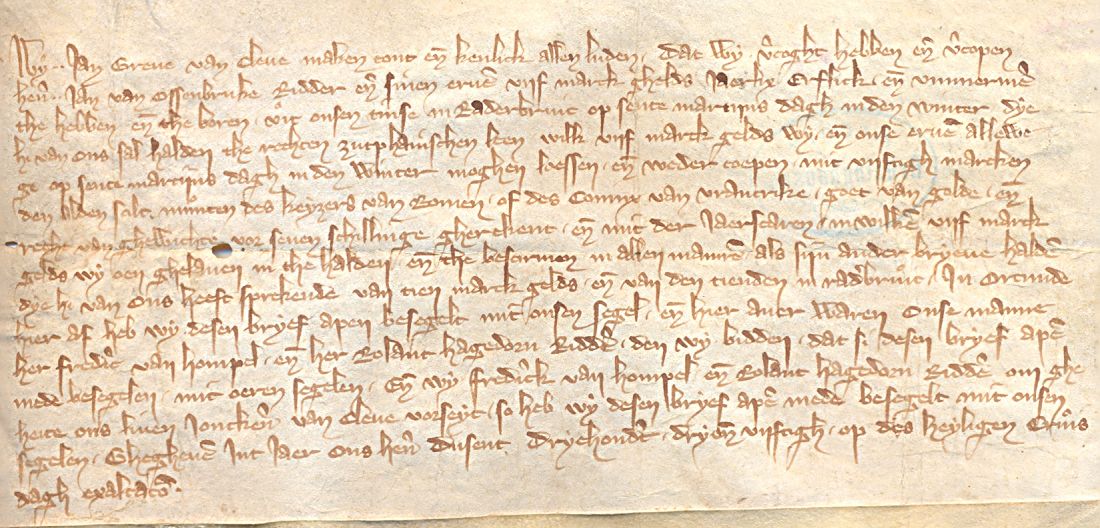 Wy Jan Greve van Cleve maken cont en̄ kenlick allen luden, dat wy v̓coght hebben en̄ v̓copen
hern̄ Jan van Ossenbruke Ridder en̄ sinen eruen̄ vijf marck ghelds Jaerlix Erflick en̄ vmmerme
the hebben en̄ the boren vijt onsen tinse in Raderbruic op sente martijns dagh in den winter dye
hi van ons sal halden the rechten zutphainschen leen wilk vijf marck gelds wy en̄ onse eruen̄ allewe
ge op sente martijns dagh in den winter moghen loessen en̄ weder coepen mit vijftigh marcken
den olden scilt munten des keyzers van Romen of des Connx van vrancrike goet van golde en̄
recht van ghewichte vor seuen schillinge gherekent en̄ mit der Jaerscaren in wilken̄ vijf marck
gelds wy oen ghelauen in the halden en̄ the bescirmen in allen maniren̄ als sijn ander bryeue halden̄
dye hi van ons heeft sprekende van tien marck gelds en̄ van den tienden in radbruic In Orcunde
hier af heb wy desen bryef apen besegelt mit onsen segel en̄ hier auer waren onse manne
her fredic̄ van hompel en̄ her Rolant hagedorn Ridde̅ den wy bidden dat si desen bryef ape̅
mede besegelen mit oeren segelen En̄ wy fredrick van hompel en̄ Rolant hagedorn Ridde̅ om ghe
heite ons lieuen Jonckern̄ van Cleue vorseyt so heb wy desen bryef ape̅ mede besegelt mit onsen
segelen Ghegheuen̄ Int Jaer ons hern̄ dusent dryehondt̓ dry en̄ vijftigh op des heyligen Crucs
dagh exaltaco̅